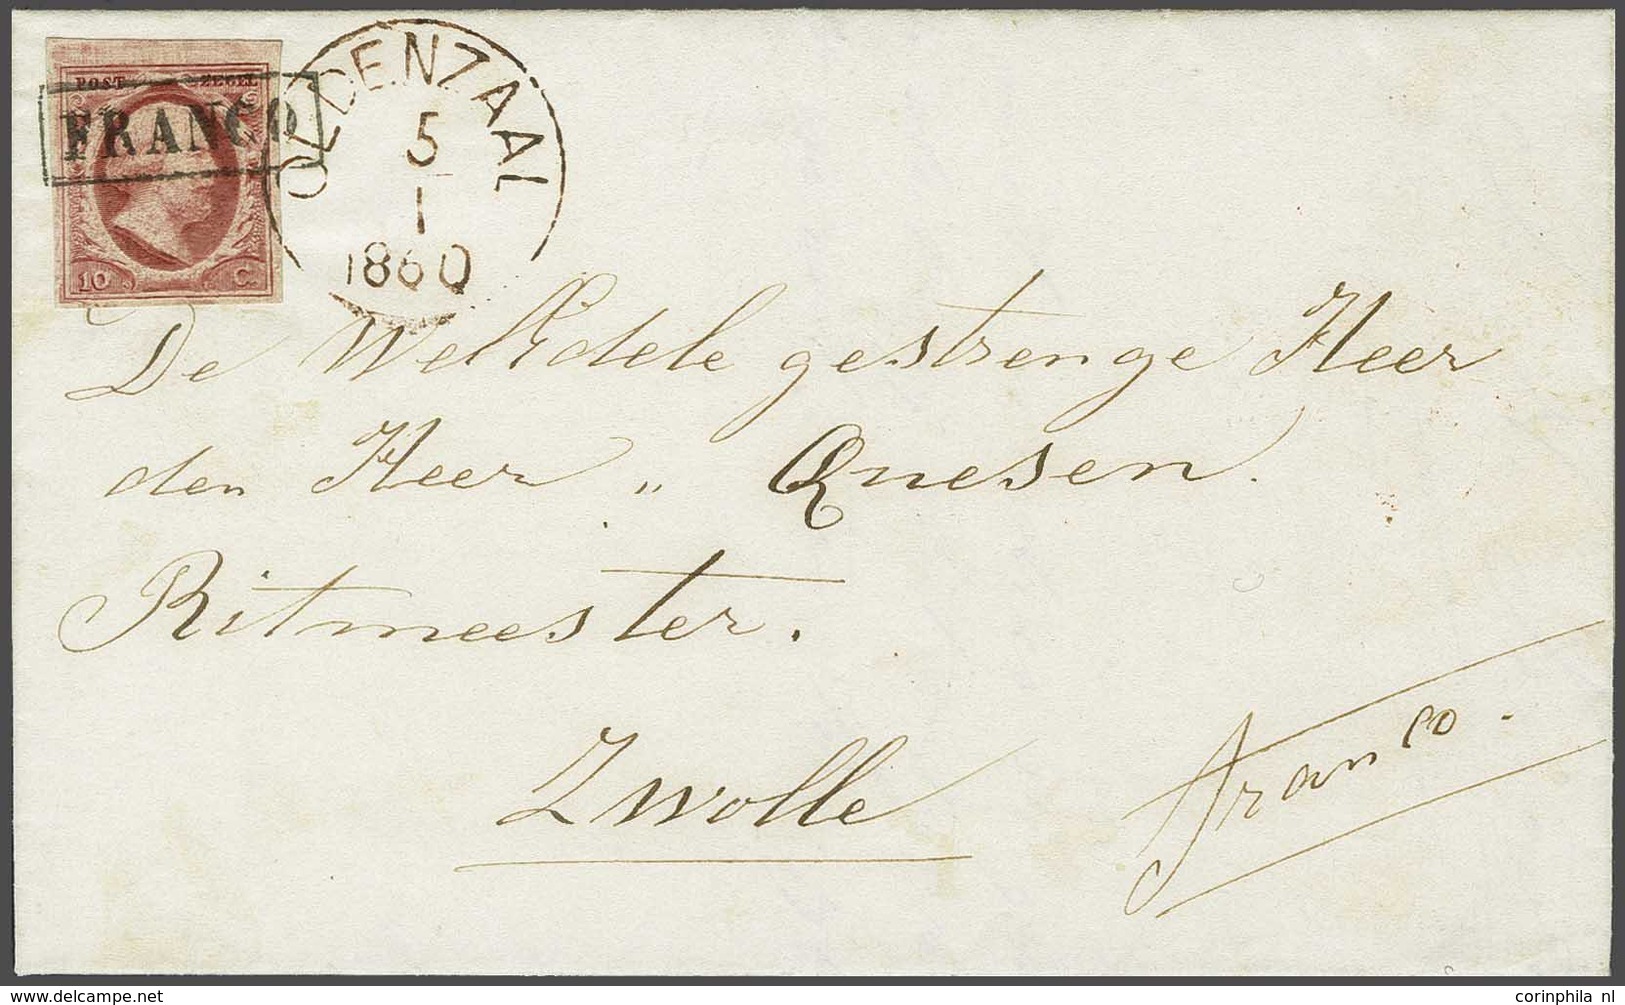 POST ZEGEL
FRANCO
10 C.
OLDENZAAL
5
1
1860
De WelEdele gestrenge Heer
den Heer „ Quesen.
Ritmeester.
Zwolle
franco.
www.delcampe.net
corinphila nl